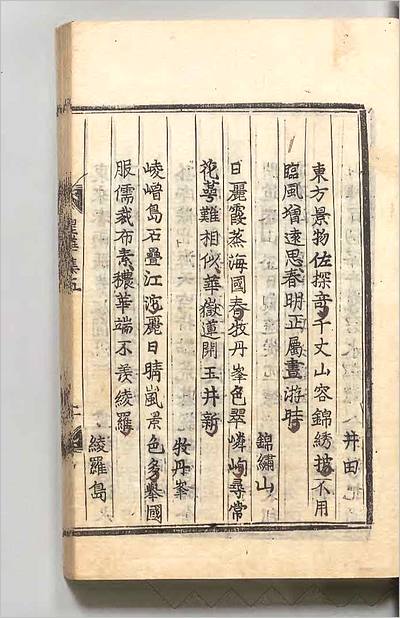 井田
東方景物佐探竒千丈山容錦綉披不用
臨風猶遠思春明正屬晝游時
錦繡山
日麗霞蒸海國春牧丹峯色翠嶙峋尋常
花萼難相似華嶽蓮開玉井新
牧丹峯
崚嶒島石疊江沱麗日晴嵐景色多擧國
服儒裁布素穠華端不羨綾羅
綾羅島
皇華集五